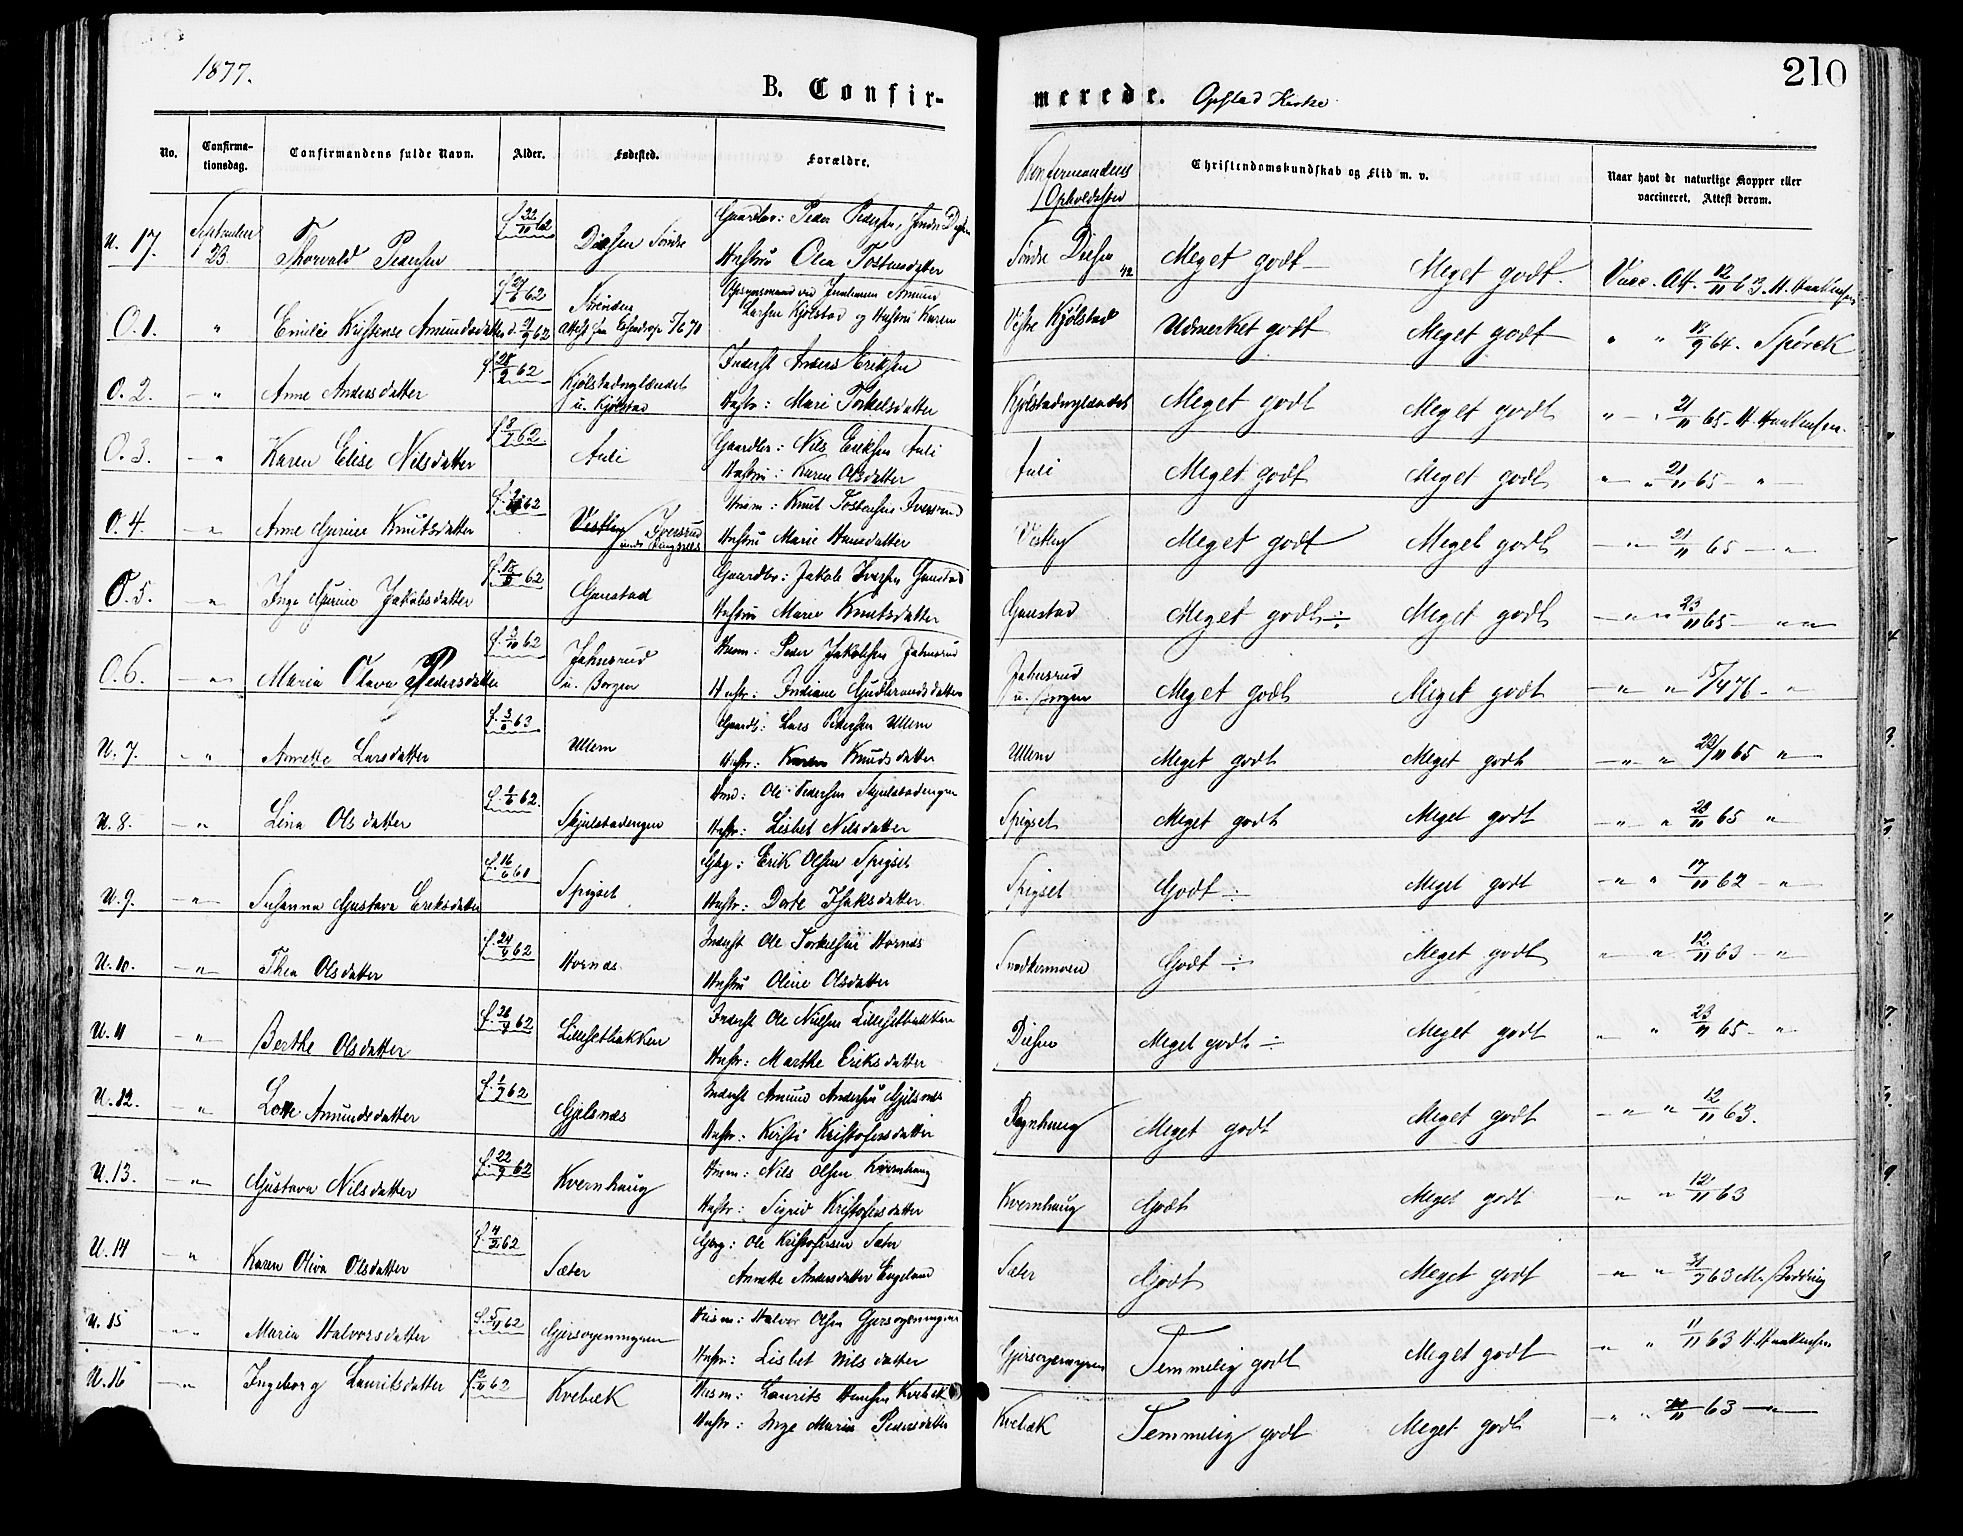 1877.
B. Confir-
merede. Opstad Kirke
210
No. Confirma-tionsdag. Confirmandens fulde Navn. Alder. Fødested. Forældre.
Konfirmandens Opholdssted Christendomskundskab og Flid m. v. Naar havt de naturlige Kopper eller vaccineret. Attest derom.
U. 17. September 23. Thorvald Pedersen f. 22/11 62 Diesen Søndre Gaardbr: Peder Pedersen, Søndre Diesen Hustru Olea Tostensdatter Søndre Diesen Meget godt Meget godt. Vacc. Att. 12/11 63. H. Haakensen
O. 1. " Emilie Kristense Amundsdatter Meget godt " " 9 64. Spørck
Vestre Kjølstad Udmerket godt
O. 2. " Anne Andersdatter f. 28/2 62 Kjølstadnylændet u. Kjølstad Inderst Anders Eriksen Hustr: Mari Torkelsdatter Kjølstadnylændet Meget godt Meget godt " " 21/11 65. H. Haakensen.
O. 3. " Karen Elise Nilsdatter f. 8/7 62 Auli Gaardbr: Nils Eriksen Auli Hustru: Karen Olsdatter Auli Meget godt Meget godt " " 21/11 65 "
O. 4. " Anne Gurine Knutsdatter Iversrud Husm: Knut Tostensen Iversrud Hustru Marie Hansdatter Meget godt Meget godt " 21/11 65 "
O. 5. " Inge Gurine Jakobsdatter Gaustad Gaardbr: Jakob Iversen Gaustad Hustru Marie Knutsdatter Gaustad Meget godt ÷ Meget godt " " 23/11 65 " "
O. 6. " Maria Olava Pedersdatter f. 3/10 62 Jahnsrud u. Borgen Husm: Peder Jakobsen Jahnsrud Hustr: Indiane Gudbrandsdatter Jahnsrud u. Borgen Meget godt Meget godt " " 76 "
U. 7. " Annette Larsdatter Ullern Gaardb: Lars Pedersen Ullern Hustr: Karen Knudsdatter Ullern Meget godt Meget godt " " 22/11 65 "
U. 8. " Lina Olsdatter f. 1/6 62. Skjulstadengen Husm: Ole Pedersen Skjulstadengen Hustr: Lisbet Nilsdatter Spigset Meget godt Meget godt " " 28/11 65 "
U. 9. " Susanna Gustava Eriksdatter f. 16/6 60 Spigset Gbrg: Erik Olsen Spigset Hustr: Dorte Isaksdatter Spigset Godt ÷ Meget godt " " 17/11 62 "
U. 10. " Thea Olsdatter f. 24/9 62 Hornæs Inderst Ole Torkelsen Hornæs Hustru Oline Olsdatter Snedkermoen Godt ÷ Meget godt " " 12/11 63 "
U. 11 " Berthe Olsdatter Lillesetbakken Inderst Ole Nielsen Lillesetbakken Hustr: Marthe Eriksdatter Diesen Meget godt ÷ Meget godt " " 23/11 65 "
U. 12. " Lotte Amundsdatter f. 1/7 62 Gjelsnæs Inderst Amund Andersen Gjelsnæs Hustr: Kirsti Kristofersdatter Meget godt Meget godt " " 12/11 63.
U. 13. " Gustava Nilsdatter f. 22/9 62 Kvernhaug Husm: Nils Olsen Kvernhaug Hustr: Sigrid Kristofersdatter Kvernhaug Godt Meget godt " " 12/11 63
U. 14 " Karen Oliva Olsdatter f. 4/2 62 Sæter Gbrg: Ole Kristofersen Sæter Annette Andersdatter Engelund Sæter Godt Meget godt " " 31/7 63
U. 15 " " Maria Halvorsdatter Gjersøyenmyren Husm: Halvor Olsen Gjersøyenmyren Hustr: Lisbet Nilsdatter Gjersøyenmyren Temmelig godt Meget godt " " 11/11 63 H. Haakensen
U. 16 " Ingeborg Lauritsdatter Kvebæk Husm: Laurits Hansen Kvebæk Hustr: Inge Maria Pedersdatter Kvebæk Temmelig godt Meget godt " " 63 "